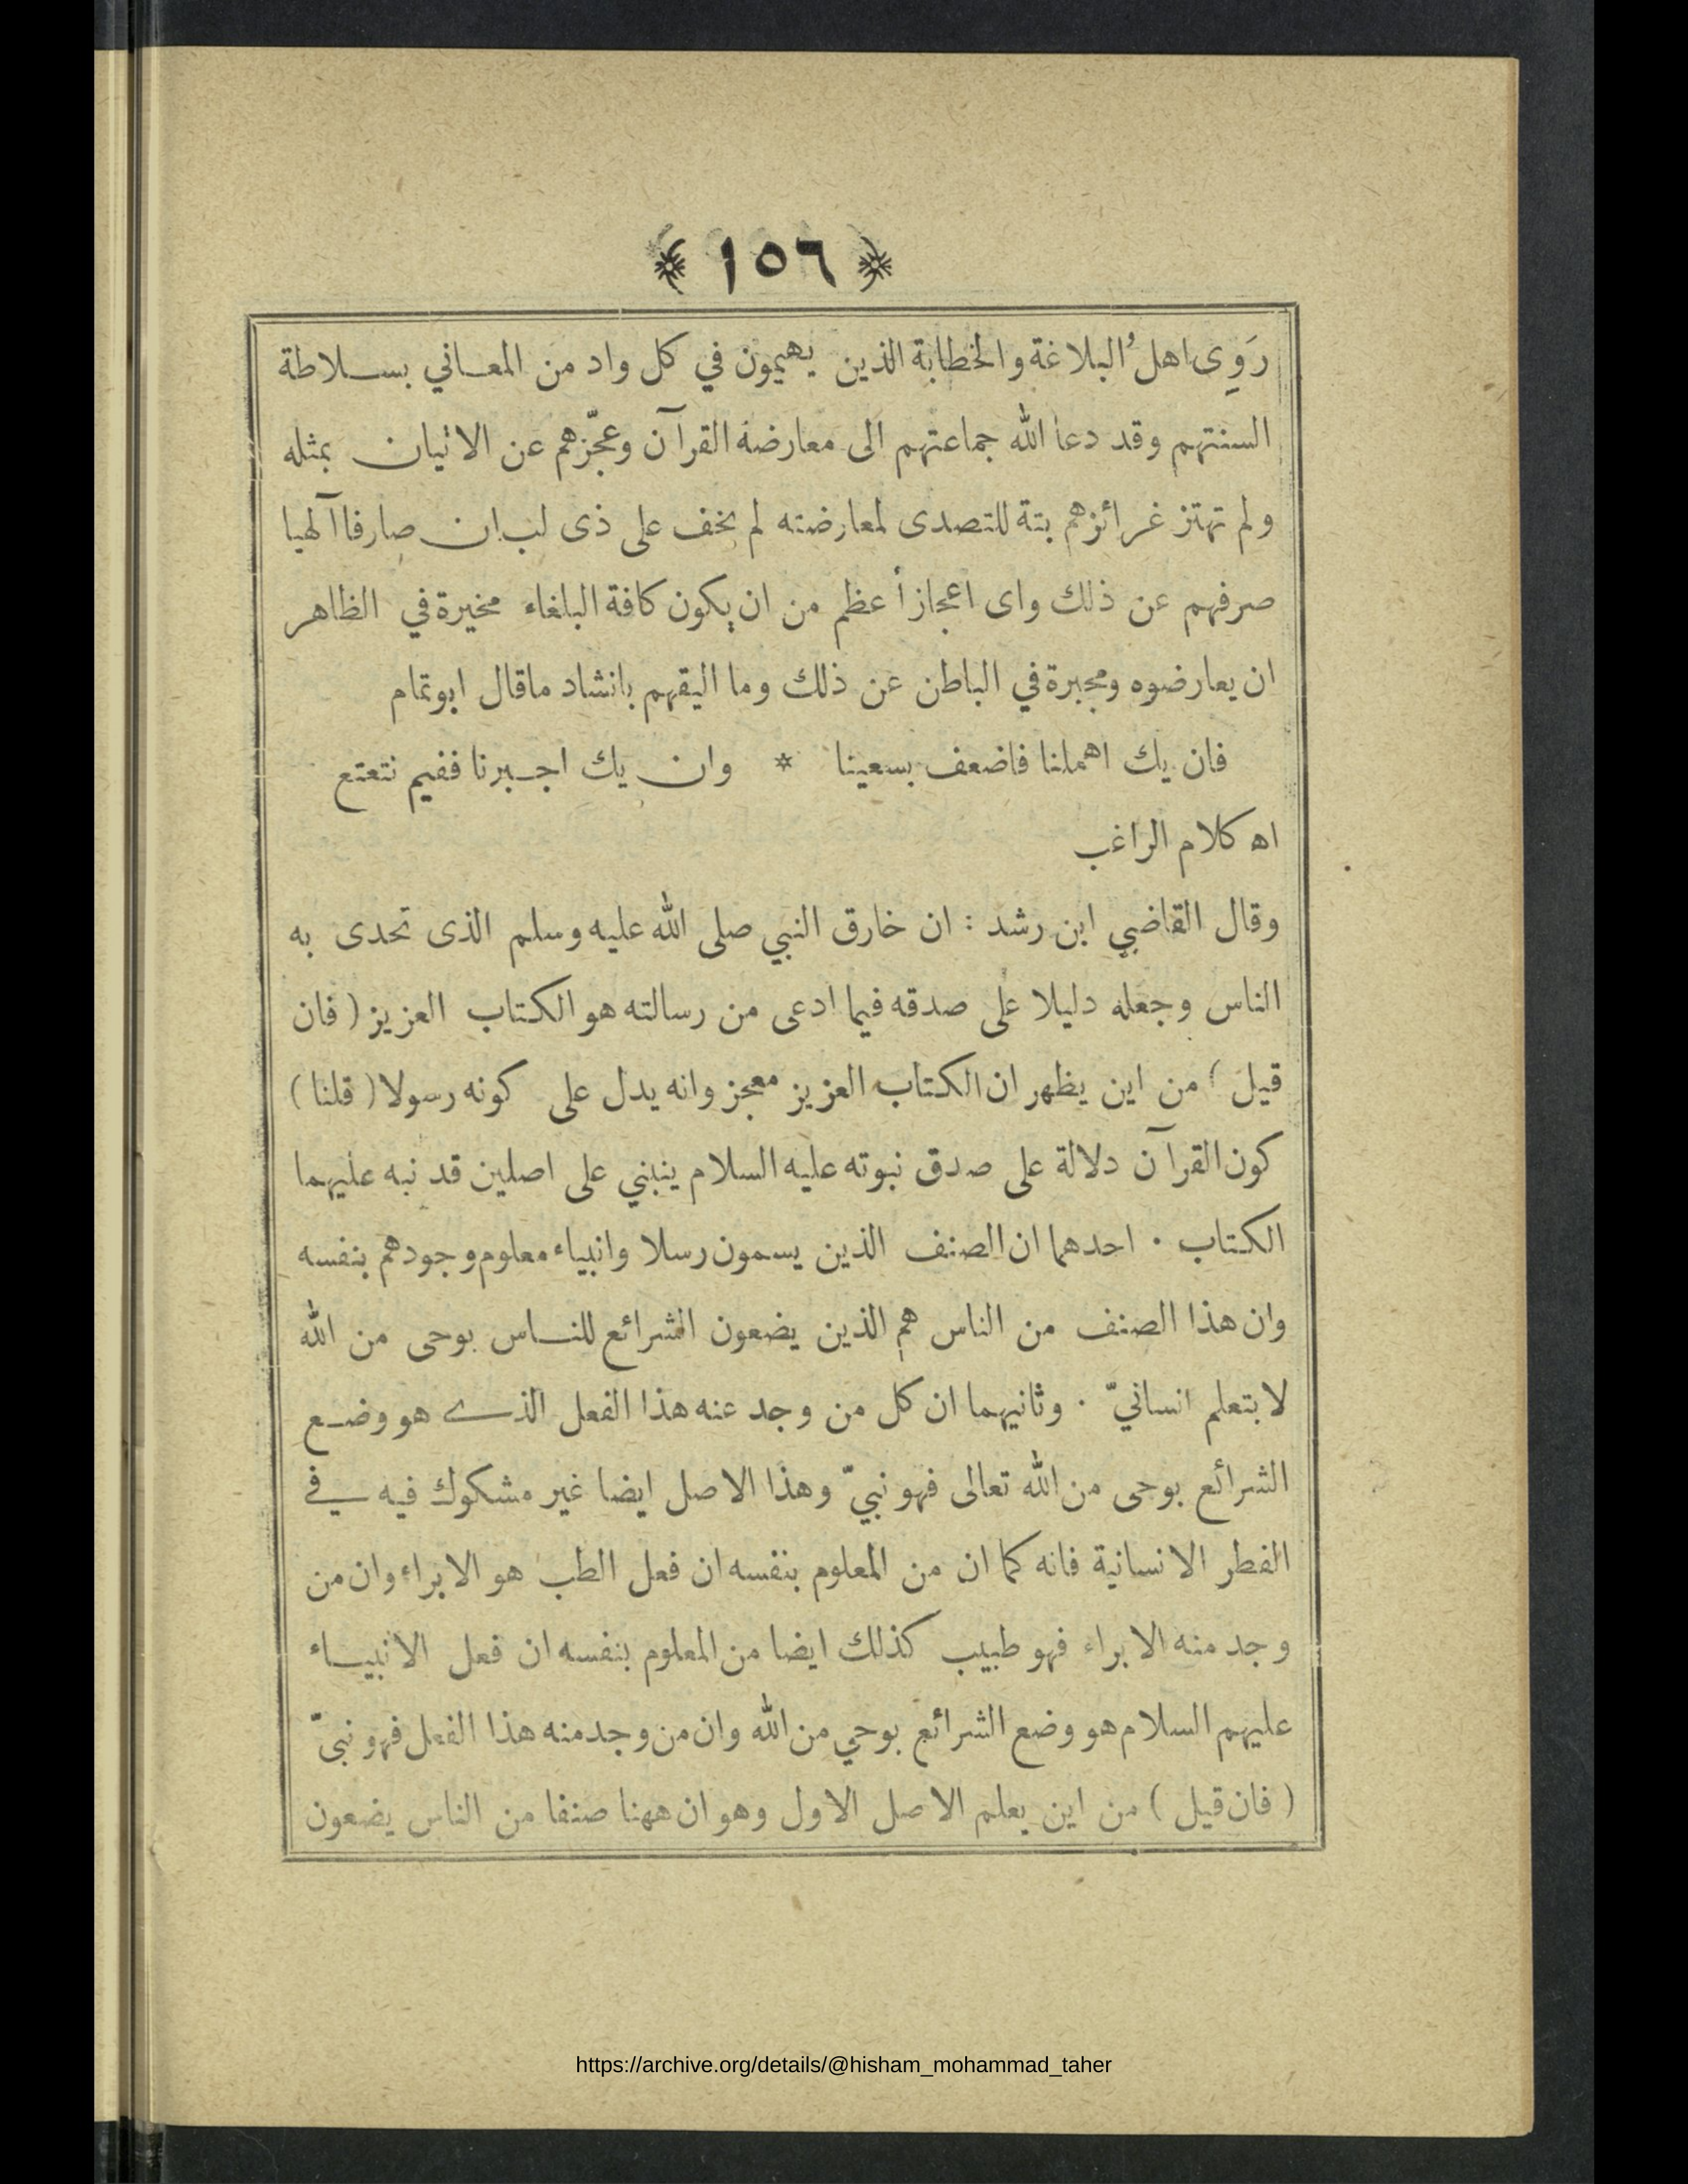 ﴿ ١٥٦ ﴾
رَوِى اهل ُالبلاغة والخطابة الذين يهيمون في كل واد من المعاني بسلاطة
السنتهم وقد دعا الله جماعتهم الى معارضة القرآن وعجّزهم عن الاتيان بمثله
ولم تهتز غرائزهم بتة للتصدى لمعارضته لم يخف على ذى لب ان صارفا آلهيا
صرفهم عن ذلك واى اعجاز أعظم من ان يكون كافة البلغاء مخيرة في الظاهر
ان يعارضوه ومجبرة في الباطن عن ذلك وما اليقهم بانشاد ماقال ابوتمام
فان يك اهملنا فاضعف بسعينا * وان يك اجبرنا ففيم نتعتع
اه كلام الراغب
وقال القاضي ابن رشد : ان خارق النبي صلى الله عليه وسلم الذى تحدى به
الناس وجعله دليلا على صدقه فيما ادعى من رسالته هو الكتاب العزيز ( فان
قيل ) من اين يظهر ان الكتاب العزيز معجز وانه يدل على كونه رسولا ( قلنا )
كون القرآن دلالة على صدق نبوته عليه السلام ينبني على اصلين قد نبه عليهما
الكتاب ٠ احدهما ان الصنف الذين يسمون رسلا وانبياء معلوم وجودهم بنفسه
وان هذا الصنف من الناس هم الذين يضعون الشرائع للناس بوحى من الله
لا بتعلم انسانيّ ٠ وثانيهما ان كل من وجد عنه هذا الفعل الذى هو وضع
الشرائع بوحى من الله تعالى فهو نبيّ وهذا الاصل ايضا غير مشكوك فيه في
الفطر الانسانية فانه كما ان من المعلوم بنفسه ان فعل الطب هو الابراء وان من
وجد منه الابراء فهو طبيب كذلك ايضا من المعلوم بنفسه ان فعل الانبياء
عليهم السلام هو وضع الشرائع بوحي من الله وان من وجد منه هذا الفعل فهو نبيّ
( فان قيل ) من اين يعلم الاصل الاول وهو ان ههنا صنفا من الناس يضعون
https://archive.org/details/@hisham_mohammad_taher